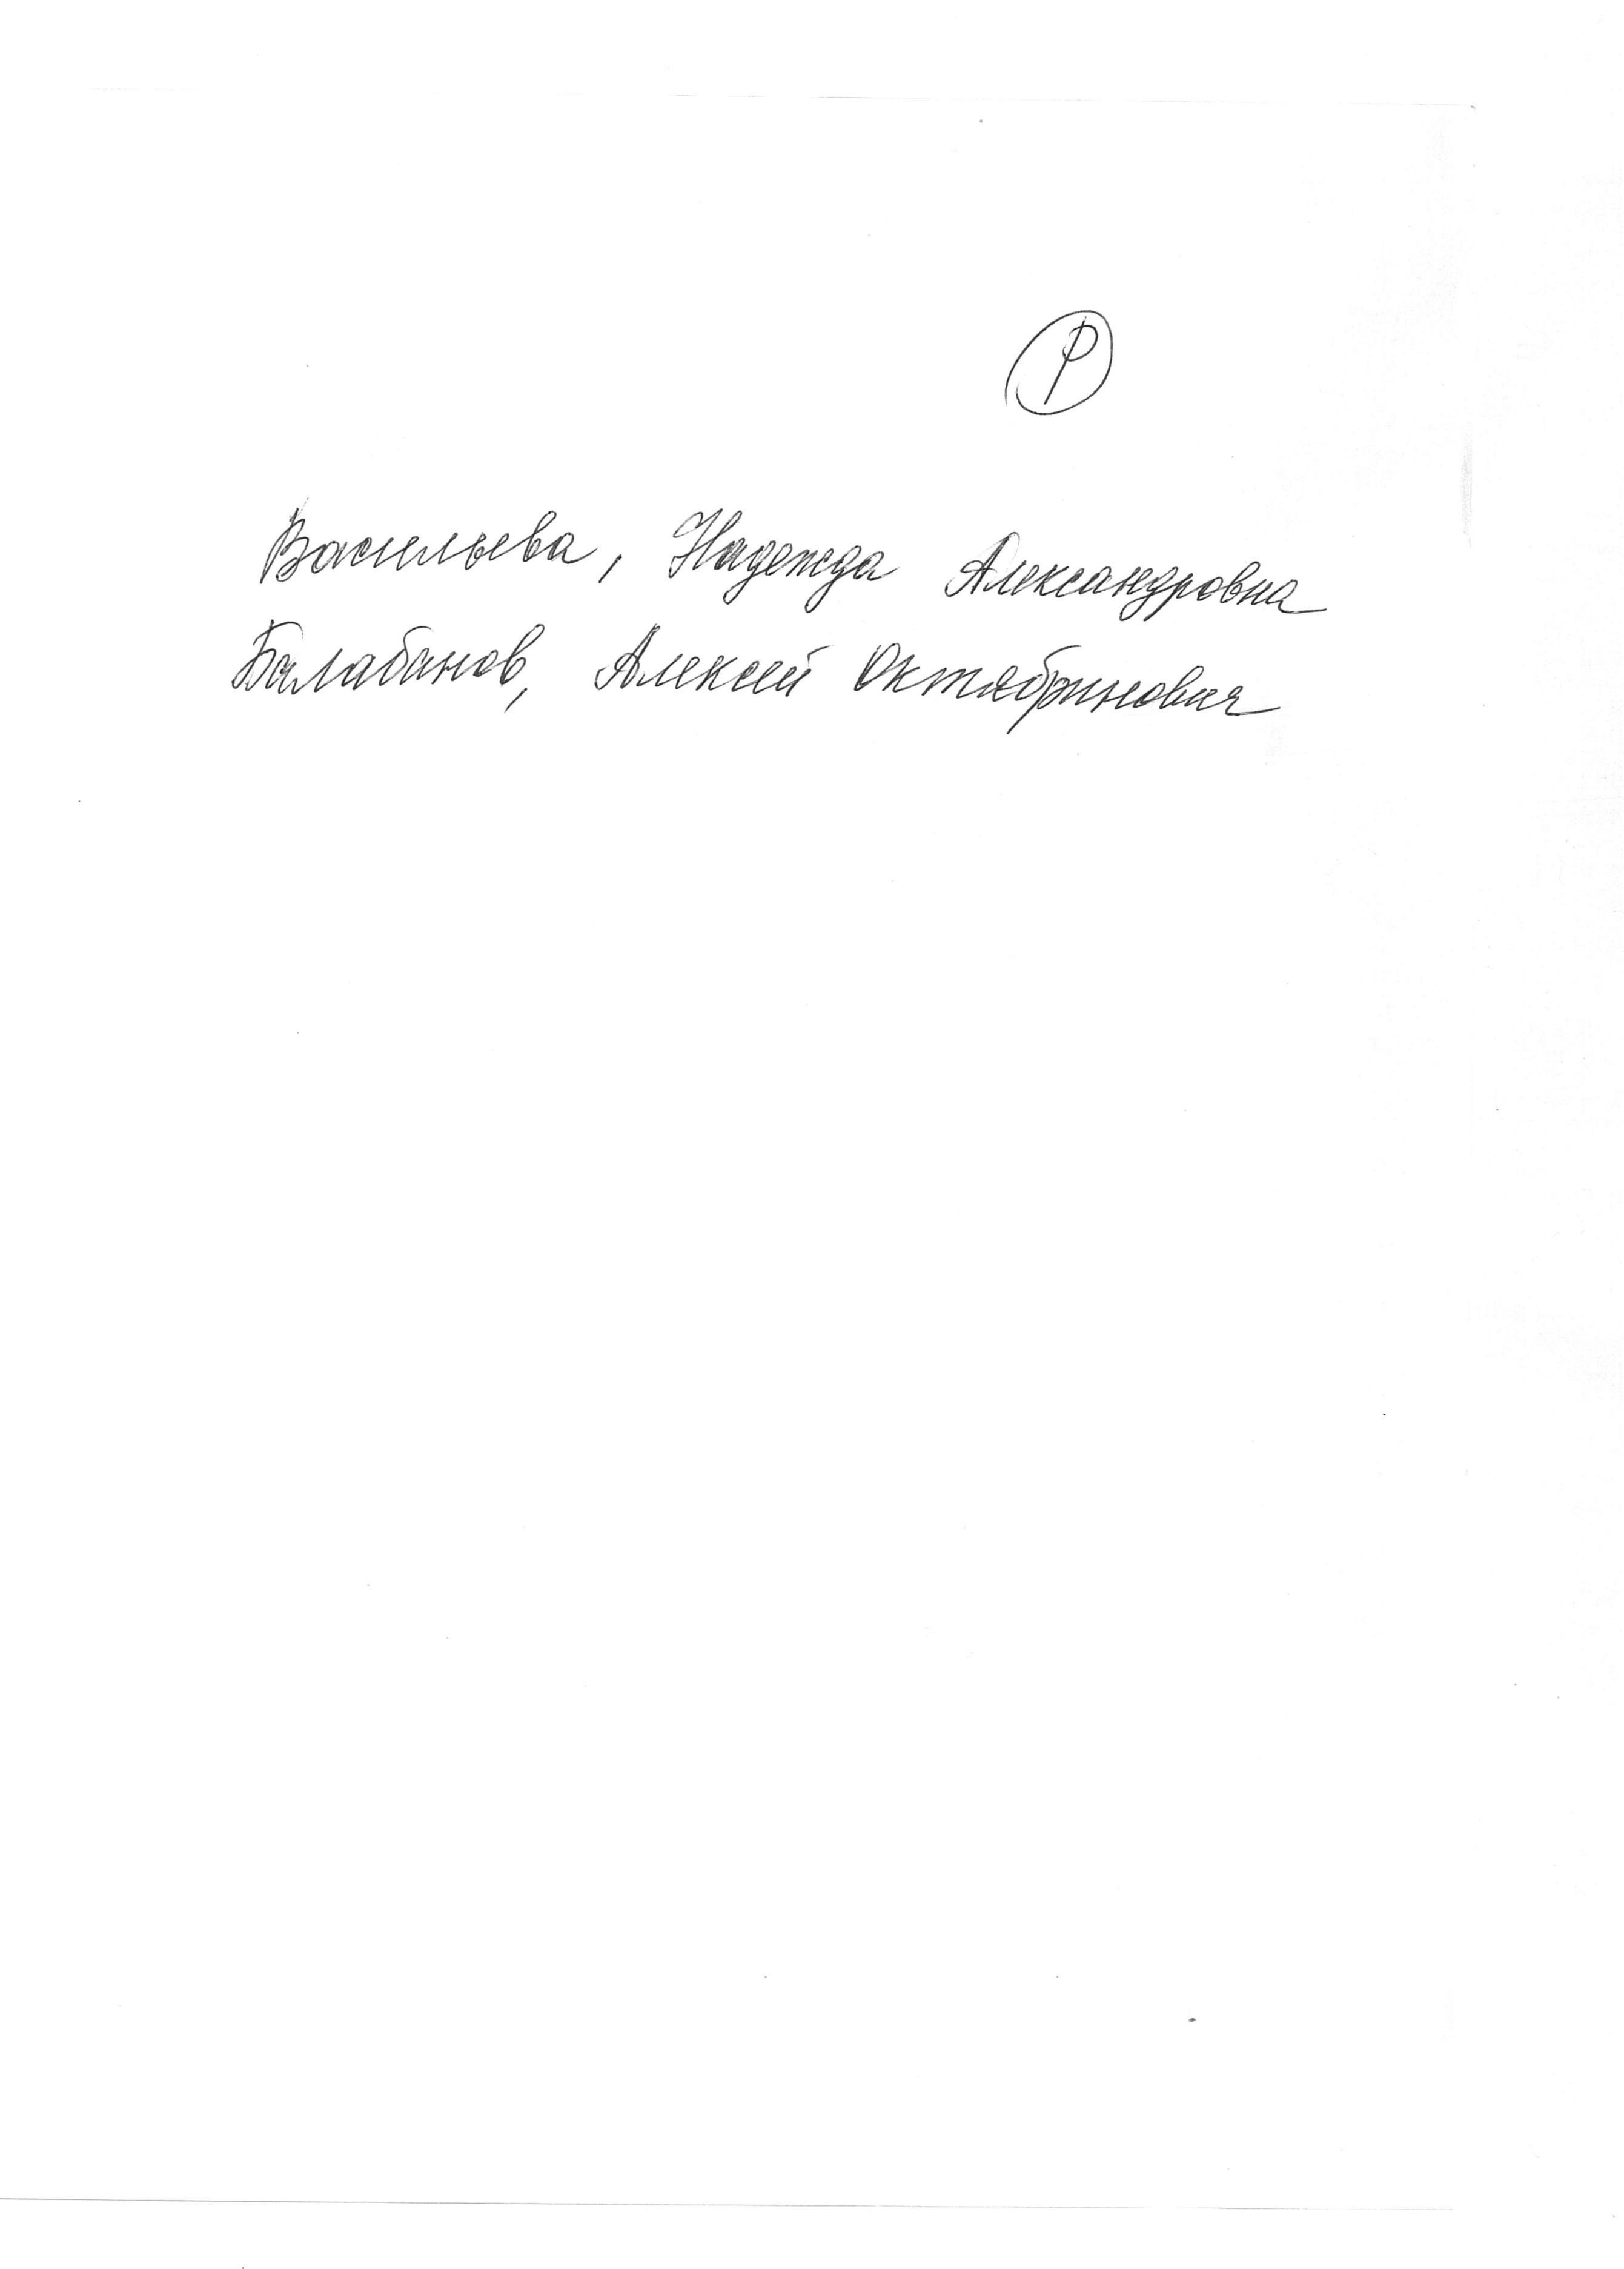 Р
Васильева, Надежда Александровна
Балабанов, Алексей Октябринович